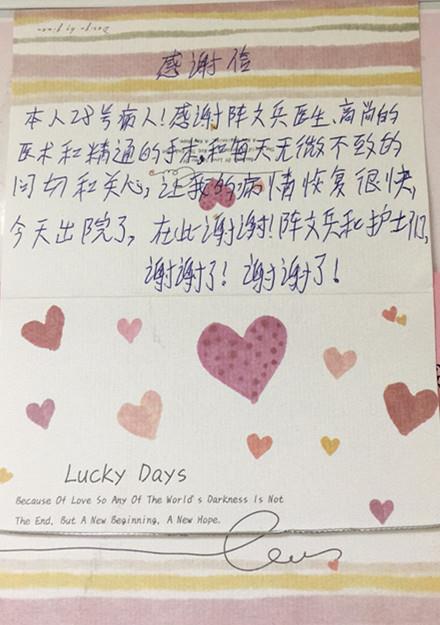 感谢信
本人28号病人!感谢阵文兵医生、高尚的
医术和精通的手术,和每天无微不致的
问切和关心,让我的病情恢复很快,
今天出院了,在此谢谢!阵文兵和护士们,
谢谢了!谢谢了!
Lucky Days
Because Of Love So Any Of The World's Darkness Is Not
The End, But A New Beginning, A New Hope.